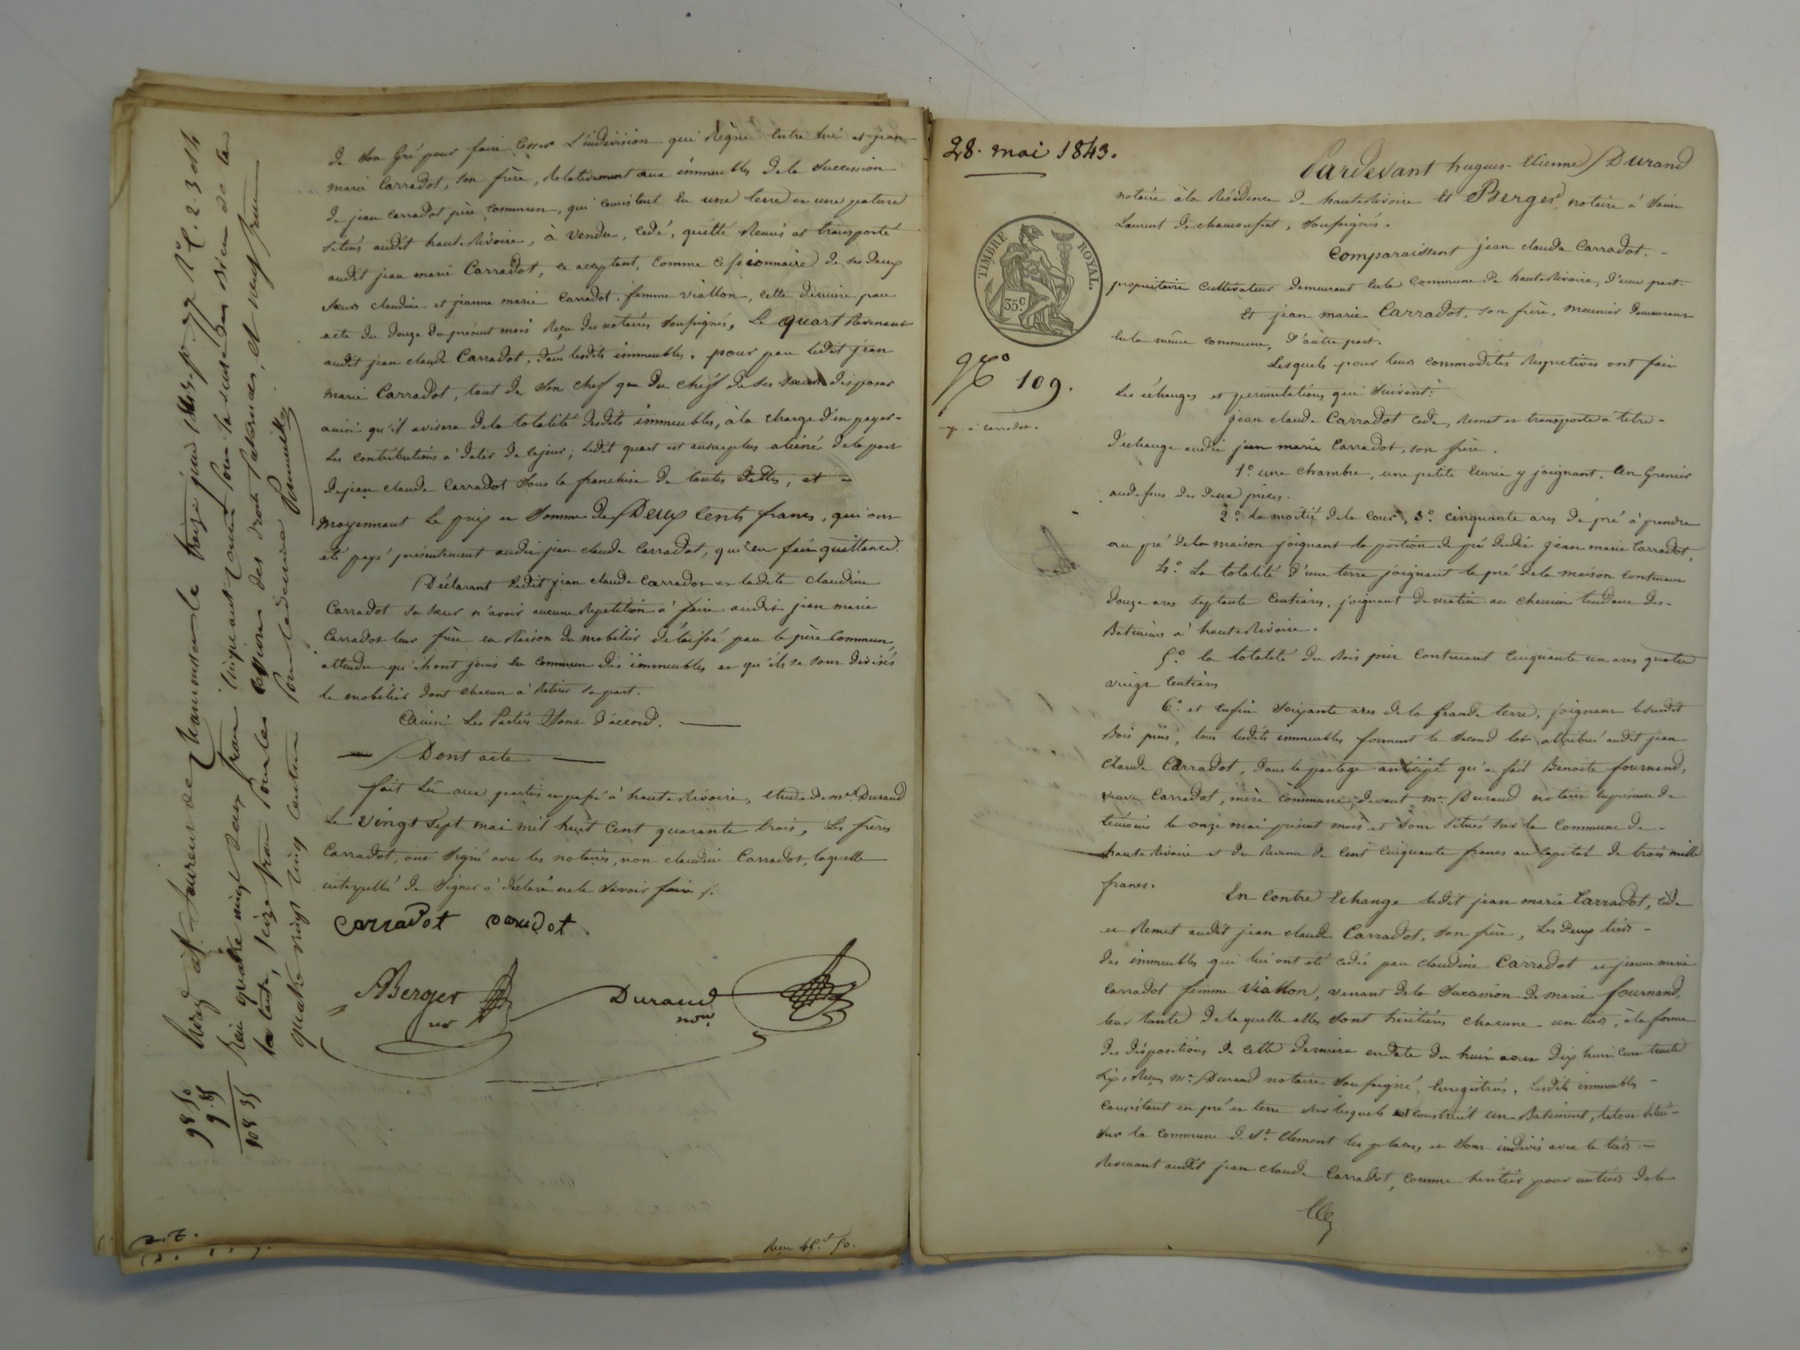 de son gré pour faire cesser l'indivision qui règne entre lui et jean
marie Carradot, son frère, relativement aux immeubles de la succession
de jean Carradot père commun, qui consistent en une terre et une pature
situés audit hauterivoire, à vendu, cédé, quitté remis et transporté
audit jean marie Carradot, ce acceptant, comme cessionnaire de ses deux
sœurs claudine et jeanne marie Carradot, femme viallon, cette dernière par
acte du douze du présent mois reçu des notaires soussignés, le quart revenant
audit jean claude Carradot, dans lesdits immeubles. pour par ledit jean
marie Carradot, tant de son chef que du chef de ses sœurs disposer
ainsi qu'il avisera de la totalité desdits immeubles, à la charge d'en payer
les contributions à dater de ce jour; ledit quart est au surplus aliéné de la part
de jean claude Carradot sous la franchise de toutes dettes, et
moyennant le prix et somme de Deux Cents francs, qui ont
été payé présentement audit jean claude Carradot, qui en fait quittance.
Déclarant ledit jean claude Carradot et ladite claudine
Carradot sa sœur n'avoir aucune répétition à faire audit jean marie
Carradot leur frère en raison du mobilier délaissé par le père commun,
attendu qu'ils ont joui en commun des immeubles et qu'ils se sont divisés
le mobilier dont chacun a retiré sa part.
Ainsi les Parties sont d'accord.
Dont acte
fait lu aux parties et passé à hauterivoire, étude de me. Durand
le vingt sept mai mil huit cent quarante trois, les frères
Carradot, ont signé avec les notaires, non claudine Carradot, laquelle
interpellée de signer a déclaré ne le savoir faire /.
Carradot Caradot
ABerger
nre
Durand
nore
98 50
9.85
108 35
28. mai 1843.
TIMBRE ROYAL.
35c
No 109.
exp. à carradot.
Pardevant hugues-Etienne Durand
notaire à la Résidence de hauterivoire et Berger, notaire à Saint
Laurent de chamousset, soussignés.
Comparaissent jean claude Carradot,
propriétaire cultivateur demeurant en la commune de hauterivoire, d'une part.
Et jean marie Carradot, son frère, meunier demeurant
en la même commune, d'autre part.
Lesquels pour leurs commodités respectives ont fait
les échanges et permutations qui suivent:
jean claude Carradot cède, remet et transporte à titre
d'échange audit jean marie Carradot, son frère.
1o. une chambre, une petite écurie y joignant. Un Grenier
au dessus des deux pièces.
2o. la moitié de la cour, 3o. cinquante ares de pré à prendre
au pré de la maison joignant la portion de pré dudit jean marie Carradot,
4o. La totalité d'une terre joignant le pré de la maison contenant
douze ares septante centiares, joignant de matin au chemin tendant des
Batimens à hauterivoire.
5o. la totalité du Bois pin contenant cinquante un ares quatre
vingt centiares
6o. et enfin soixante ares de la grande terre, joignant le susdit
Bois pin, tous lesdits immeubles forment le second lot attribué audit jean
Claude Carradot, dans le partage anticipé qu'a fait Benoite fournand,
veuve Carradot, mère commune, devant me. Durand notaire en présence de
témoins le onze mai présent mois et sont situés sur la commune de
hauterivoire et du revenu de cent cinquante francs au capital de trois mille
francs.
En contre Echange ledit jean marie Carradot, cède
et remet audit jean claude Carradot, son frère, les deux tiers
des immeubles qui lui ont été cédés par claudine Carradot et jeanne marie
Carradot femme Viallon, venant de la succession de marie fournand,
leur tante de laquelle elles sont héritières chacune un tiers, à la forme
des dispositions de cette dernière en date du huit aout dix huit cent trente
six, reçu Me. Durand notaire soussigné, enregistrées. Lesdits immeubles
consistant en pré et terre sur lesquels est construit un Batiment, le tout situé
sur la commune de St. Clement les places, et sont indivis avec le tiers
revenant audit jean claude Carradot, comme héritier pour un tiers de la